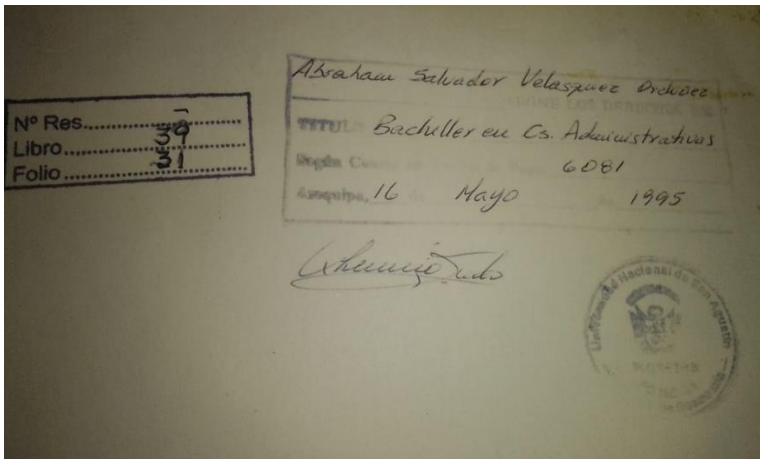 Nº Res. –
Libro 39
Folio 31
Abraham Salvador Velasquez Ordoñez
ABONE LOS DERECHOS
TITULO Bachiller en Cs. Administrativas
Según 6081
Arequipa, 16 de Mayo 1995
Universidad Nacional de San Agustín